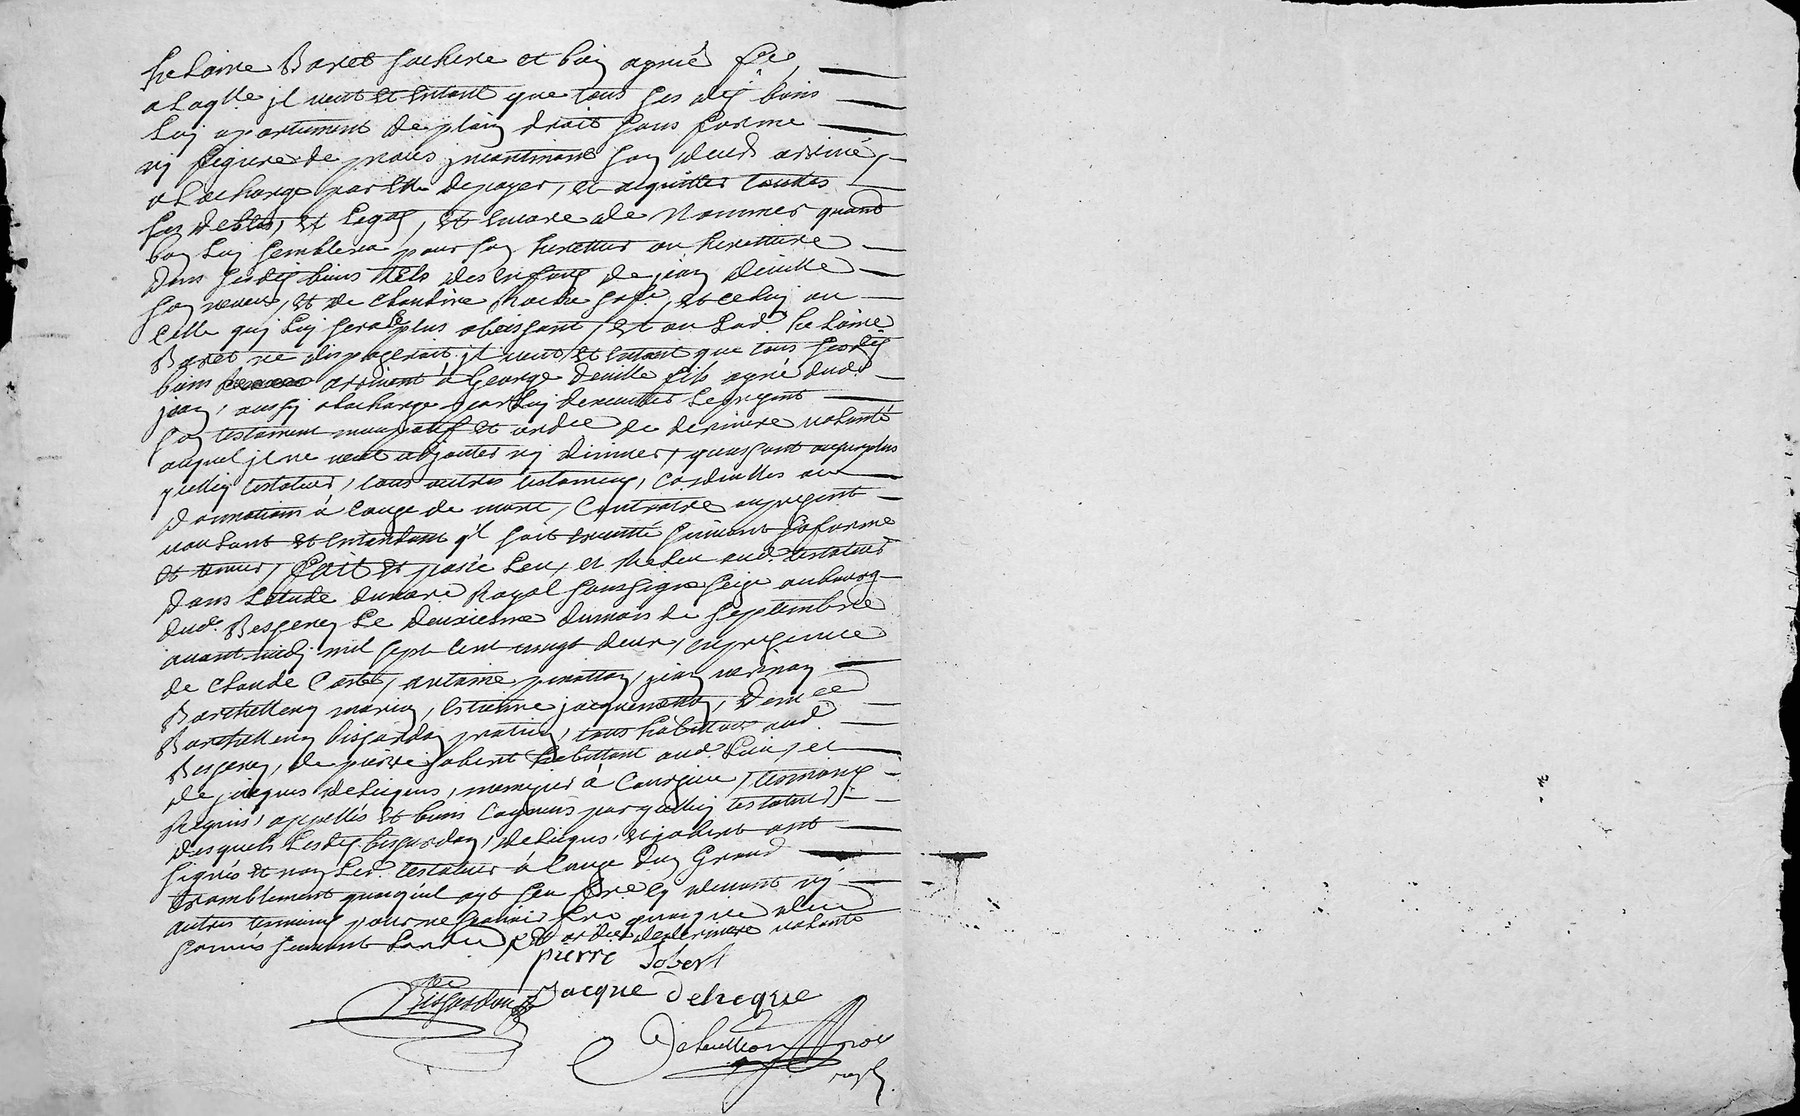 helaine Baret sa chere et bien aymée fe
a laqlle jl veut et entant que tous ses dis biens
luy apartiennent de plain droit sans forme
ny figure de procès jncontinant son decds arrivé,
a la charge par elle de payer, et aquitter toutes
ses debtes, et legas, et encore de nommer quand
bon luy semblera pour son herettier ou herettiere
dans sesdis biens tels des enfans de jean deville
son neveu, et de Claudine sa fe, et celuy ou
celle quy luy sera le plus obeissant, et ou lad. helaine
Baret ne disposeroit jl veut et entant que tous sesdis
biens arrivent à George deville fils ayné dud.
jean, aussy a la charge par luy d'executer le present
son testament noncupatif et ordre de derniere volonté
auquel jl ne veut adjouter ny diminuer, quassant au surplus
yelluy testateur, tous autres testamens, codicilles ou
donnations à cause de mort, contraire au present
voulant et entendant q'il soit executté suivant sa forme
et teneur, fait et passé leu, et releu aud. testateur
dans l'etude du nore Royal soussigné size au bourg
dud. Bessenay le deuxiesme du mois de septembre
avant midy mil sept cent vingt deux, en presence
de Claude Coste, antoine pinatton, jean
Barthellemy marin, estienne jacquemetton, demce
Barthellemy bissardon praticien, tous habittans aud.
Bessenay, de pierre jobert habittant aud. lieu, et
de jacques delieques, meusnier à Courzieu, temoins
requis, appellés et bien cogneus par yelluy testateur
desquels lesdis bissardon, delieques, et jobert ont
signés et non led. testateur à cause d'un grand
tremblement quoiqu'il ayt sceu fere cy devant ny
autres temoins pour ne scavoir fere quoyque de ce
sommés suivant l'ordce, et ordre de derniere volonté
pierre Jobert
Bissardon Jacque delieque
not